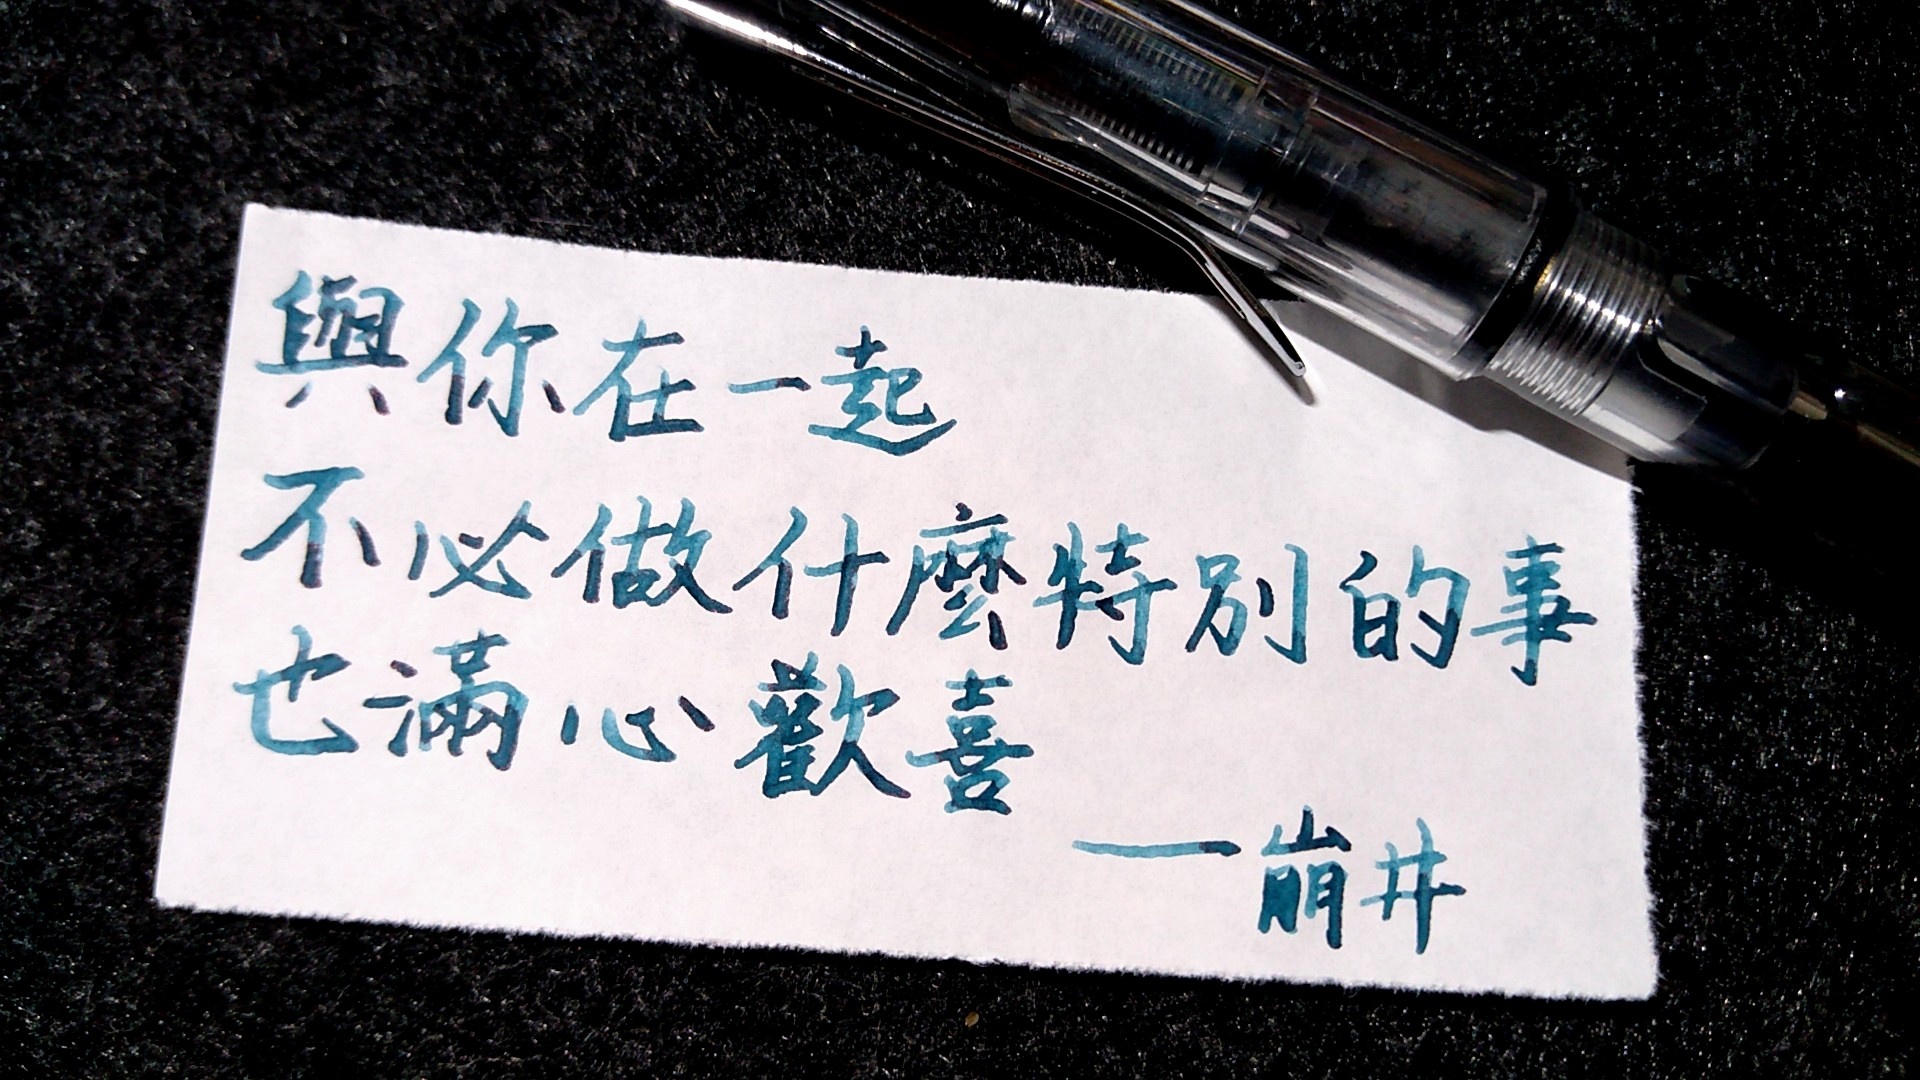 與你在一起
不必做什麼特別的事
也滿心歡喜
—崩井